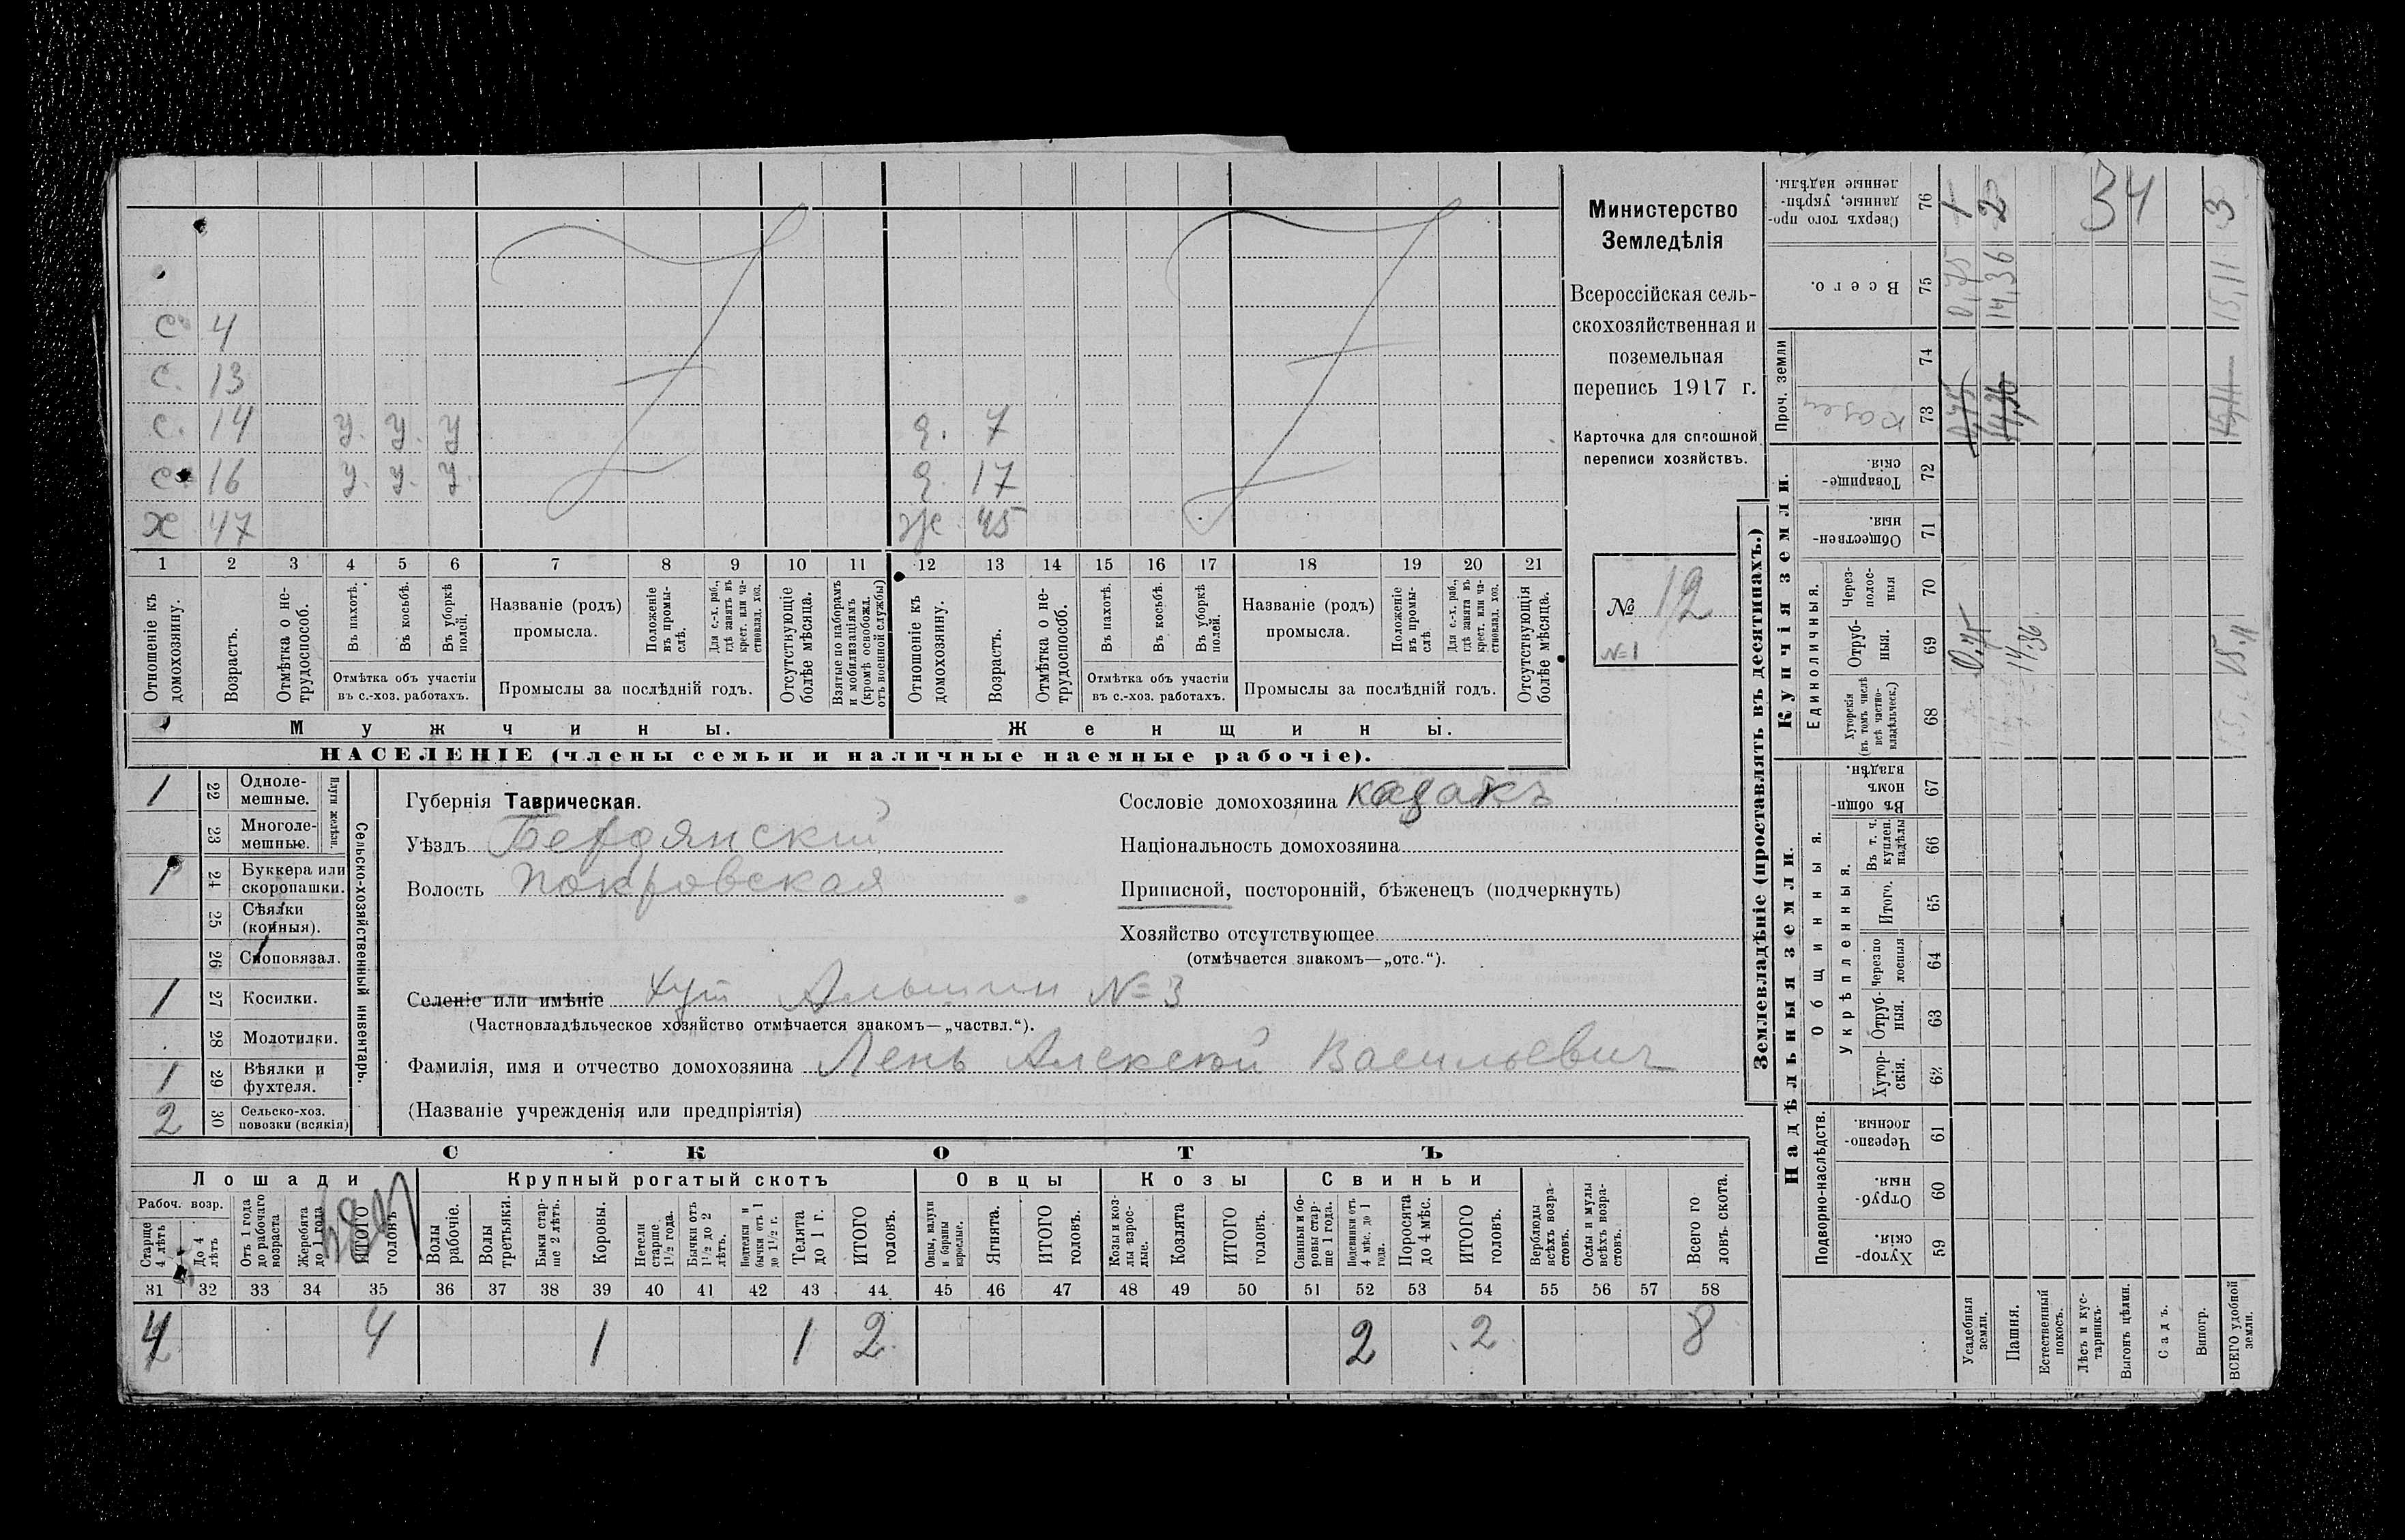 С. 4
С. 13
С. 14 У. У. У д. 7
С. 16 У. У. У. д. 17
Х 47 Ж 45
1 2 3 4 5 6 7 8 9 10 11 12 13 14 15 16 17 18 19 20 21
Отношеніе къ домохозяину.
Возрастъ.
Отмѣтка о не-трудоспособ.
Въ пахотѣ.
Въ косьбѣ.
Въ уборкѣ полей.
Отмѣтка объ участіи
въ с.-хоз. работахъ.
Названіе (родъ)
промысла.
Положеніе въ промы-слѣ.
Для с.-х. раб., гдѣ занятъ въ крест. или ча-стновлад. хоз.
Промыслы за послѣдній годъ.
Отсутствующіе болѣе мѣсяца.
Взятые по наборамъ и мобилизаціямъ (кромѣ освобожд. отъ военной службы)
Отношеніе къ домохозяину.
Возрастъ.
Отмѣтка о не-трудоспособ.
Въ пахотѣ.
Въ косьбѣ.
Въ уборкѣ полей.
Отмѣтка объ участіи
въ с.-хоз. работахъ.
Названіе (родъ)
промысла.
Положеніе въ промы-слѣ
Для с.-х. раб., гдѣ занята въ крест. или ча-стновлад. хоз.
Промыслы за послѣдній годъ.
Отсутствующія болѣе мѣсяца.
Мужчины. Женщины.
НАСЕЛЕНІЕ (члены семьи и наличные наемные рабочіе).
Министерство
Земледѣлія
Всероссійская сель-
скохозяйственная и
поземельная
перепись 1917 г.
Карточка для сплошной
переписи хозяйствъ.
№ 12
№ 1
1 22 Одноле-мешные.
23 Многоле-мешные.
Плуги желѣзн.
1 24 Буккера или скоропашки.
25 Сѣялки (конныя).
26 Сноповязал.
1 27 Косилки.
28 Молотилки.
1 29 Вѣялки и фухтеля.
2 30 Сельско-хоз. повозки (всякія)
Сельско-хозяйственный инвентарь.
Губернія Таврическая.
Уѣздъ Бердянскій
Волость Покровская
Сословіе домохозяина казакъ
Національность домохозяина
Приписной, посторонній, бѣженецъ (подчеркнуть)
Хозяйство отсутствующее
(отмѣчается знакомъ—„отс.“).
Селеніе или имѣніе хут Альшин № 3
(Частновладѣльческое хозяйство отмѣчается знакомъ—„частвл.“).
Фамилія, имя и отчество домохозяина Лень Алексѣй Васильевич
(Названіе учрежденія или предпріятія)
СКОТЪ
Лошади Крупный рогатый скотъ Овцы Козы Свиньи
Рабоч. возр.
Старше 4 лѣтъ
До 4 лѣтъ
Отъ 1 года до рабочаго возраста
Жеребята до 1 года
ИТОГО головъ
Волы рабочіе.
Волы третьяки.
Быки стар-ше 2 лѣтъ.
Коровы.
Нетели старше 1½ года.
Бычки отъ 1½ до 2 лѣтъ.
Подтелки и бычки отъ 1 до 1½ г.
Телята до 1 г.
ИТОГО головъ.
Овцы, валухи и бараны взрослые.
Ягнята.
ИТОГО головъ.
Козы и коз-лы взрос-лые.
Козлята
ИТОГО головъ.
Свиньи и бо-ровы стар-ше 1 года.
Подсвинки отъ 4 мѣс. до 1 года.
Поросята до 4 мѣс.
ИТОГО головъ.
Верблюды всѣхъ возра-стовъ.
Ослы и мулы всѣхъ возра-стовъ.
Всего го ловъ скота.
31 32 33 34 35 36 37 38 39 40 41 42 43 44 45 46 47 48 49 50 51 52 53 54 55 56 57 58
4 4 1 1 2 2 2 8
Землевладѣніе (проставлять въ десятинахъ.)
Надѣльныя земли. Купчія земли. Проч. земли
Подворно-наслѣдств. Общинныя. Укрѣпленныя. Единоличныя.
Сверхъ того про-данные, укрѣп-ленные надѣлы. 76 1 2 34 3
Всего. 75 0,75 14,36 15,11
74
73
Товарище-скія. 72
Обществен-ныя. 71
Через-полос-ныя 70
Отруб-ныя. 69 0.75 14.36 15.11
Хуторскія (въ томъ числѣ всѣ частно-владѣльческ.) 68
Въ общин-номъ владѣн. 67
Въ т. ч. куплен. надѣлы 66
Итого. 65
Черезпо лосныя 64
Отруб-ныя. 63
Хутор-скія. 62
Черезпо-лосныя. 61
Отруб-ныя. 60
Хутор-скія. 59
Усадебныя земли.
Пашня.
Естественный покосъ.
Лѣсъ и кус-тарникъ.
Выгонъ цѣлин.
Садъ.
Виногр.
ВСЕГО удобной земли.